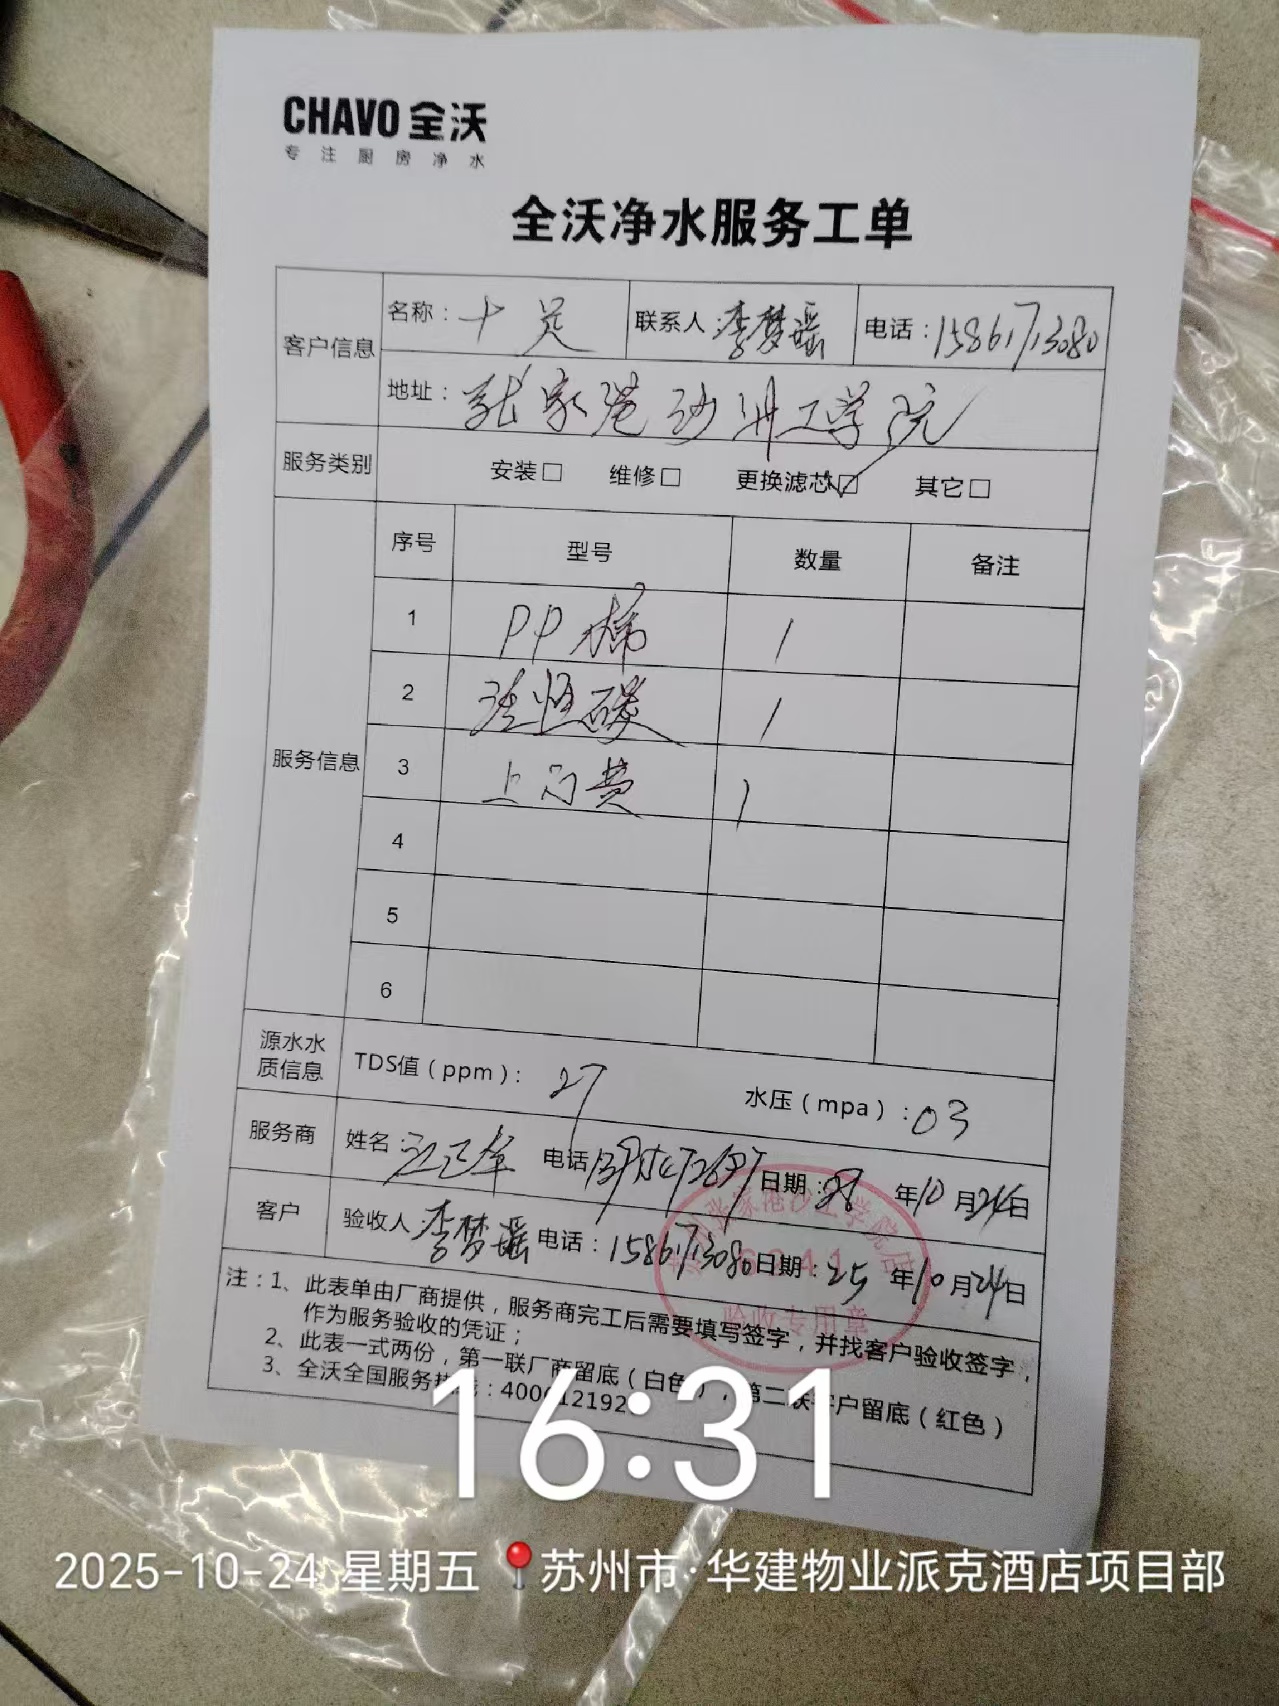 CHAVO 全沃
专注厨房净水
全沃净水服务工单
客户信息 名称： 联系人：李梦瑶 电话：15861713080
地址：张家港沙洲工学院
服务类别 安装□ 维修□ 更换滤芯☑ 其它□
服务信息 序号 型号 数量 备注
1 PP棉 1
2 活性碳 1
3 上门费 1
4
5
6
源水水质信息 TDS值（ppm）：27 水压（mpa）：03
服务商 姓名： 电话 日期： 年10月24日
客户 验收人 李梦瑶 电话：15861713080 日期：25年10月24日
张家港沙工学院店
验收专用章
注：1、此表单由厂商提供，服务商完工后需要填写签字，并找客户验收签字，
作为服务验收的凭证；
2、此表一式两份，第一联厂商留底（白色），第二联客户留底（红色）
3、全沃全国服务热线：
16:31
2025-10-24 星期五 📍苏州市·华建物业派克酒店项目部